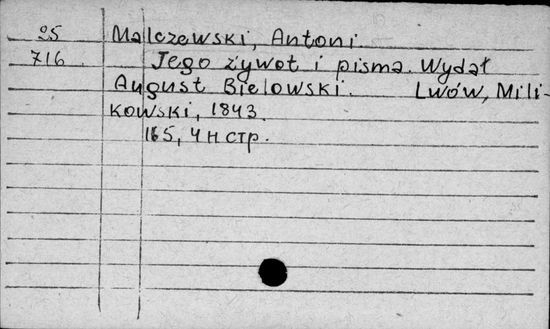 25 Malczewski, Antoni.
716 Jego żywot i pisma. Wydał
August Bielowski. Lwów, Mili-
kowski, 1843.
165, 4 н стр.